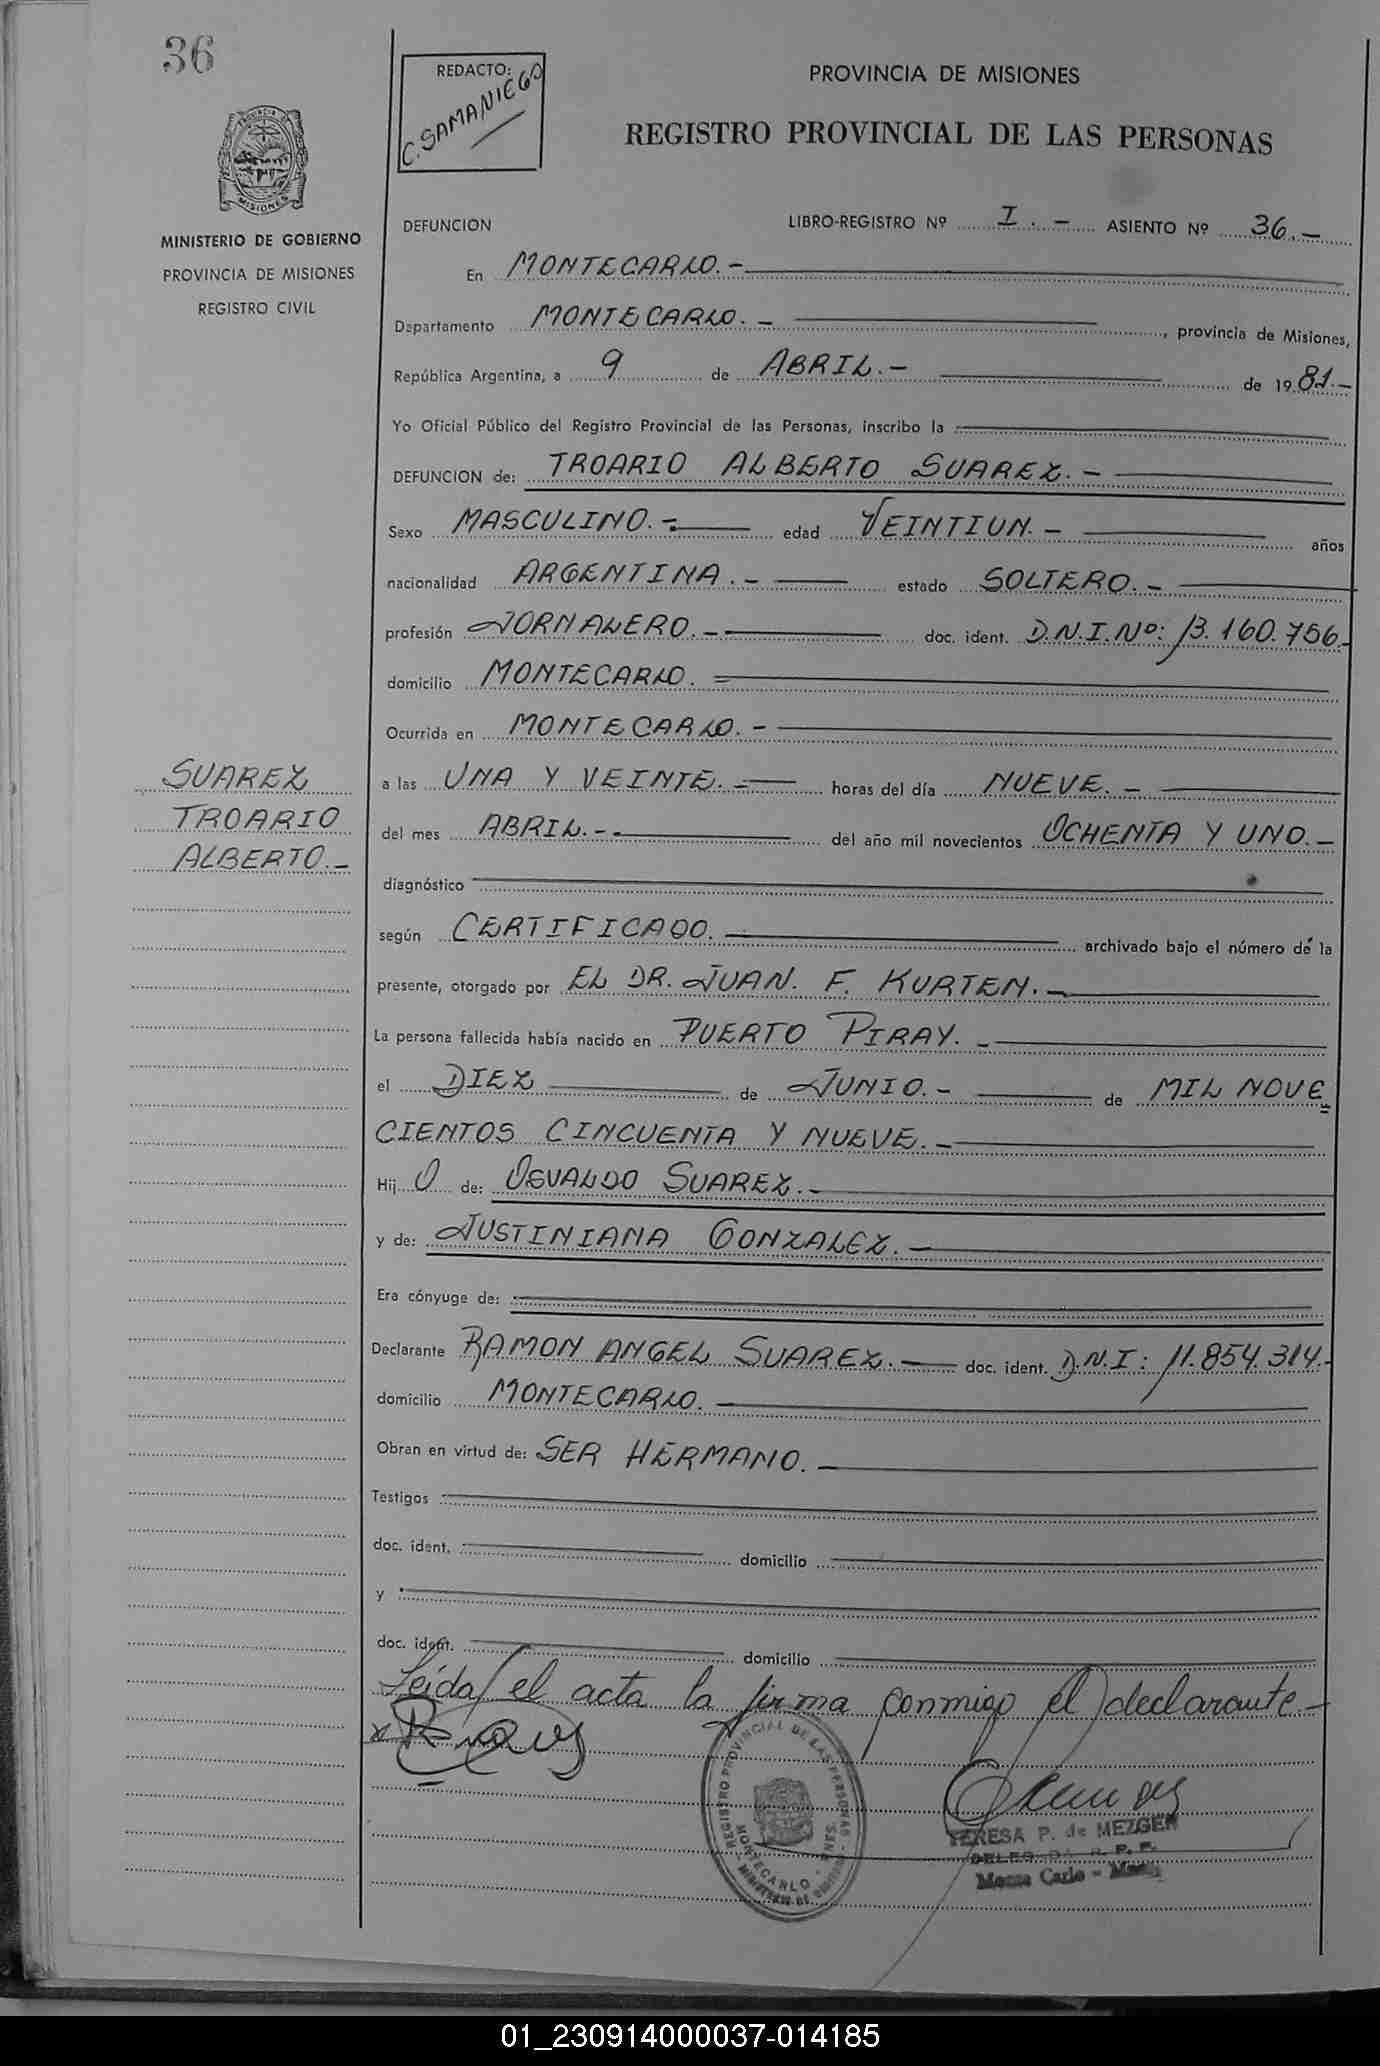 36
REDACTO:
C. SAMANIEGO
PROVINCIA DE MISIONES
REGISTRO PROVINCIAL DE LAS PERSONAS
MISIONES
MINISTERIO DE GOBIERNO
PROVINCIA DE MISIONES
REGISTRO CIVIL
DEFUNCION LIBRO-REGISTRO Nº I.- ASIENTO Nº 36.-
En MONTECARLO.-
Departamento MONTECARLO.- , provincia de Misiones,
República Argentina, a 9 de ABRIL.- de 1981.-
Yo Oficial Público del Registro Provincial de las Personas, inscribo la
DEFUNCION de: TROARIO ALBERTO SUAREZ.-
Sexo MASCULINO.- edad VEINTIUN.- años
nacionalidad ARGENTINA.- estado SOLTERO.-
profesión JORNALERO.- doc. ident. D.N.I.Nº: 13.160.756.-
domicilio MONTECARLO.
Ocurrida en MONTECARLO.-
SUAREZ
TROARIO
ALBERTO.-
a las UNA Y VEINTE.- horas del día NUEVE.-
del mes ABRIL.- del año mil novecientos OCHENTA Y UNO.-
diagnóstico
según CERTIFICADO. archivado bajo el número de la
presente, otorgado por EL DR. JUAN. F. KURTEN.-
La persona fallecida había nacido en PUERTO PIRAY.-
el DIEZ de JUNIO.- de MIL NOVE
CIENTOS CINCUENTA Y NUEVE.-
Hij O de: OSVALDO SUAREZ.-
y de: JUSTINIANA GONZALEZ.-
Era cónyuge de:
Declarante RAMON ANGEL SUAREZ.- doc. ident. D.N.I: 11.854.314.-
domicilio MONTECARLO.-
Obran en virtud de: SER HERMANO.-
Testigos
doc. ident. domicilio
y
doc. ident. domicilio
Leida el acta la firma conmigo el declarante.-
REGISTRO PROVINCIAL DE LAS PERSONAS
MONTECARLO
TERESA P. de MEZGER
Monte Carlo -
01_230914000037-014185